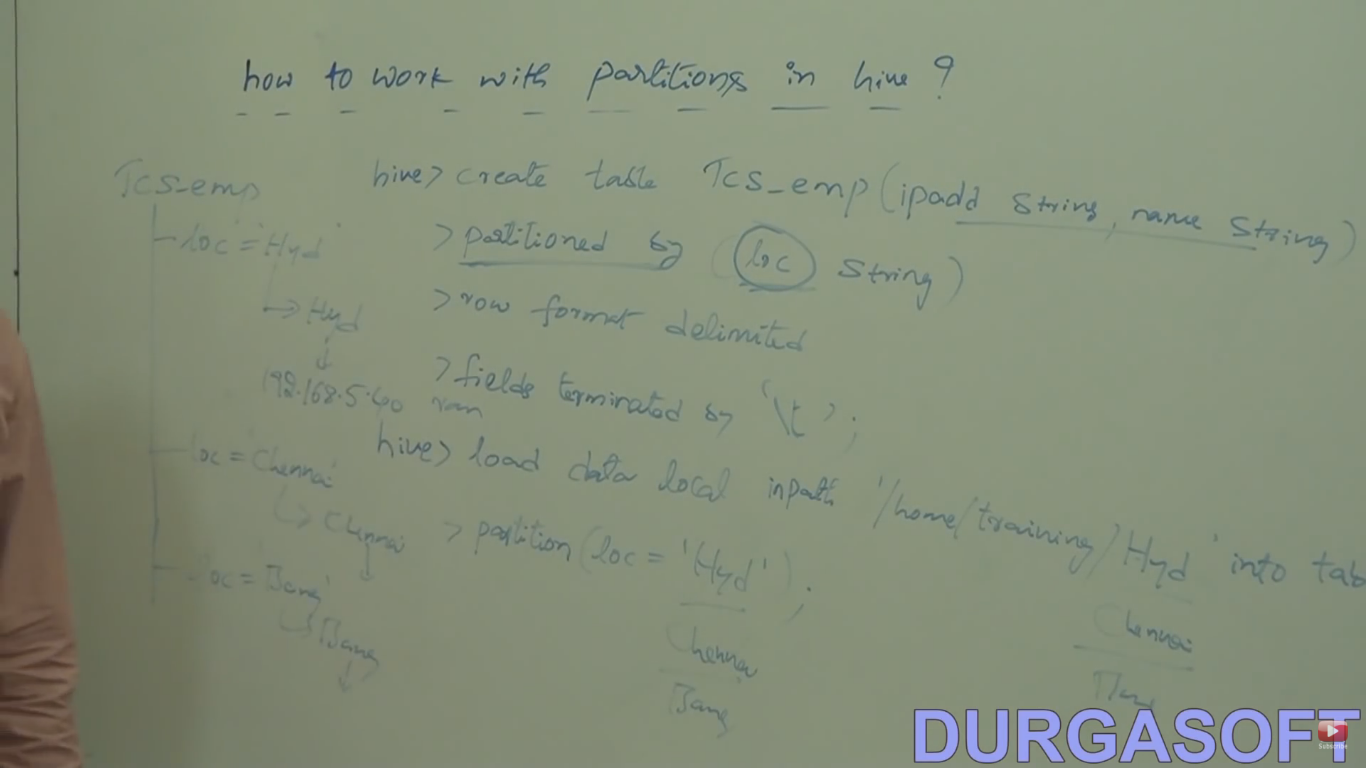 how to work with partitions in hive ?
Tcs_emp
loc = 'Hyd'
Hyd
192.168.5.40 ram
loc = 'Chennai'
Chennai
loc = 'Bang'
Bang
hive> create table Tcs_emp (ipadd string, name string)
> partitioned by (loc string)
> row format delimited
> fields terminated by '\t' ;
hive> load data local inpath '/home/training/Hyd' into tab
> partition (loc = 'Hyd') ;
Chennai
Bang
Chennai
DURGASOFT
Subscribe